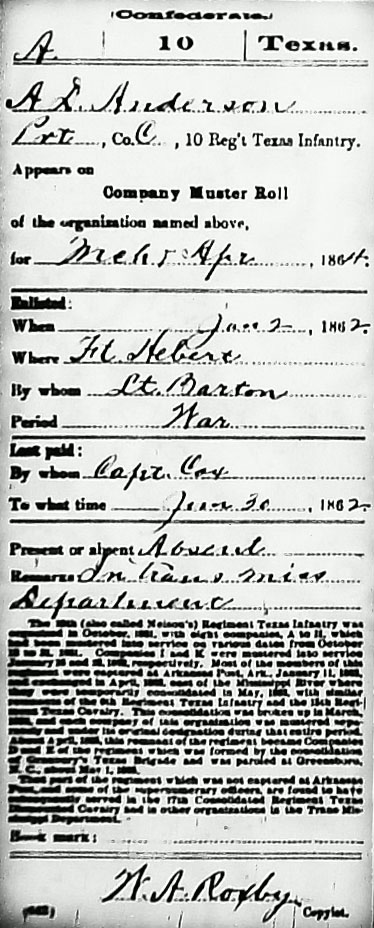 (Confederate.)
A. | 10 | Texas.
A. L. Anderson
Prt, Co. C, 10 Reg't Texas Infantry.
Appears on
Company Muster Roll
of the organization named above,
for Mch & Apr, 1864.
Enlisted:
When Jan 2, 1862.
Where Ft Hebert
By whom Lt. Barton
Period War
Last paid:
By whom Capt. Cox
To what time Jun 30, 1862.
Present or absent Absent
Remarks In trans miss
Department
The 10th (also called Nelson's) Regiment Texas Infantry was
organized in October, 1861, with eight companies, A to H, which
had been mustered into service on various dates from October
to 1861. Companies I and K were mustered into service
January and 1862, respectively. Most of the members of this
regiment were captured at Arkansas Post, Ark., January 11, 1863,
and exchanged in April, 1863, east of the Mississippi River where
they were temporarily consolidated in May, 1863, with similar
remnants of the 6th Regiment Texas Infantry and the 15th Regi-
ment Texas Cavalry. This consolidation was broken up in March,
and each company of this organization was mustered sepa-
rately and under its original designation during that entire period.
About April 1865, this remnant of the regiment became Companies
D and E of the regiment which was formed by the consolidation
of Granbury's Texas Brigade and was paroled at Greensboro,
N. C., about May 1, 1865.
That part of the regiment which was not captured at Arkansas
Post, and some of the supernumerary officers, are found to have
served in the 17th Consolidated Regiment Texas
Dismounted Cavalry and in other organizations in the Trans-Mis-
sissippi Department.
Book mark:
W. A. Roxby
(642) Copyist.